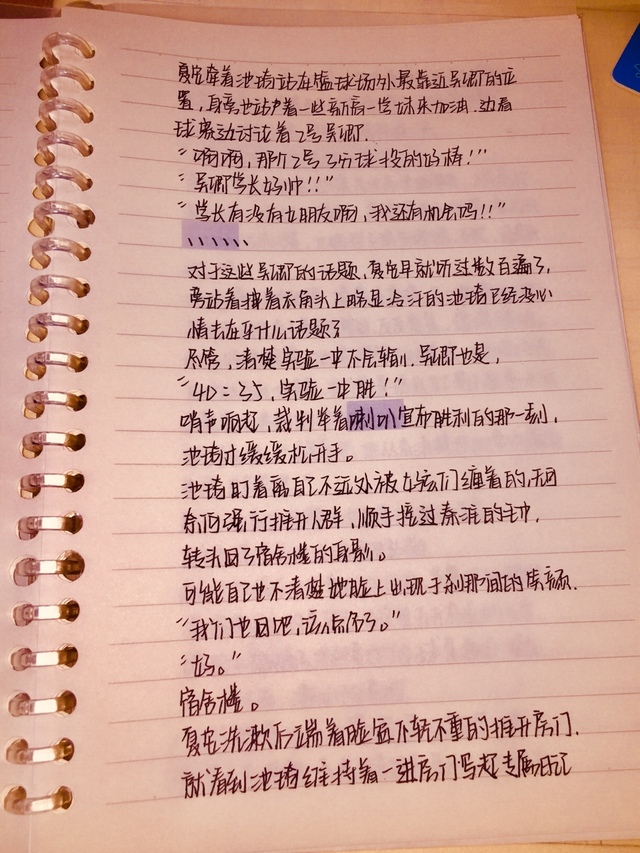 夏宛牵着池琦站在篮球场外最靠近吴卿的位
置，身旁也站着一些新高一学妹来加油，边看
球赛边讨论着2号吴卿.
“啊啊，那个2号3分球投的好棒！”
“吴卿学长好帅！！”
“学长有没有女朋友啊，我还有机会吗！！”
、、、、、、
对于这些吴卿的话题，夏宛早就听过数百遍了，
旁站着拽着衣角头上略显冷汗的池琦已经没心
情去在乎什么话题了
尽管，清楚实验一中不会输，吴卿也是，
“40：35，实验一中胜！”
哨声响起，裁判举着喇叭宣布胜利的那一刻，
池琦才缓缓松开手。
池琦盯着离自己不远处被女孩们缠着的，无
奈而强行推开人群，顺手接过秦淮的毛巾，
转头回了宿舍楼的身影。
可能自己也不清楚她脸上出现于刹那间的失颜.
“我们也回吧，该点名了。”
“好。”
宿舍楼。
夏宛洗漱后端着脸盆不轻不重的推开房门.
就看到池琦维持着一进房门写起专属日记